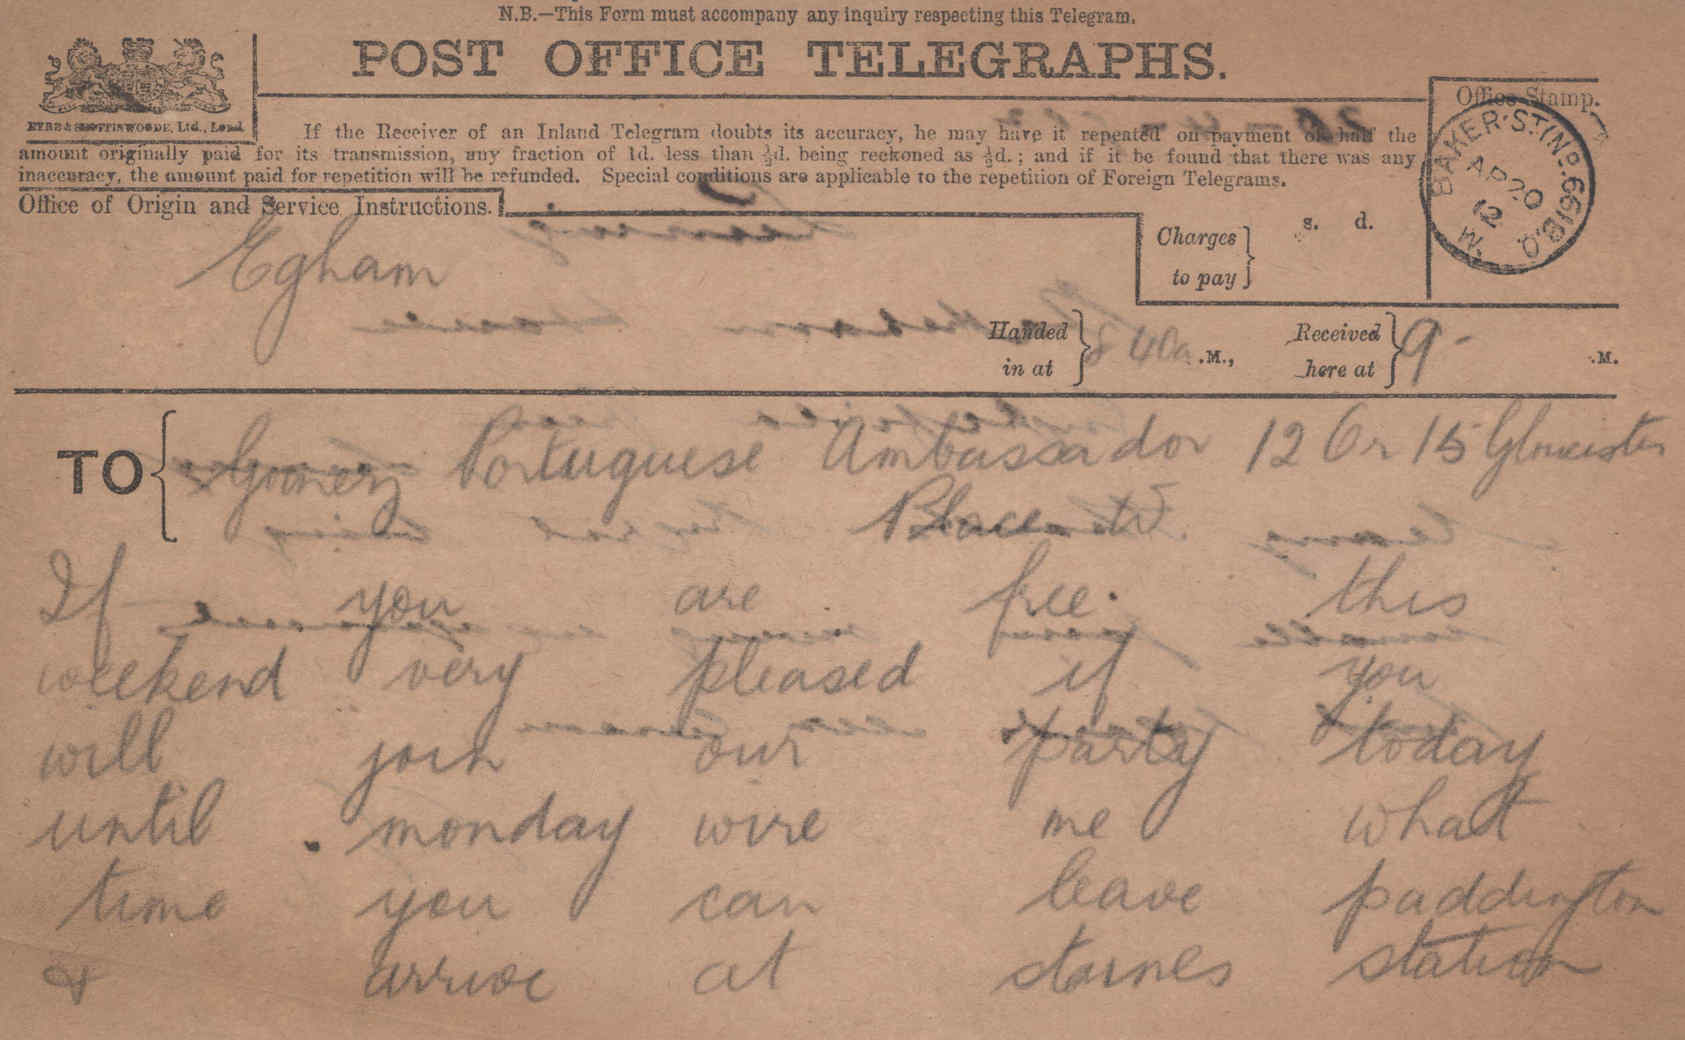 N.B.—This Form must accompany any inquiry respecting this Telegram.
POST OFFICE TELEGRAPHS.
EYRE & SPOTTISWOODE, Ltd., Lond.
Office Stamp.
If the Receiver of an Inland Telegram doubts its accuracy, he may have it repeated on payment of half the
amount originally paid for its transmission, any fraction of 1d. less than ½d. being reckoned as ½d.; and if it be found that there was any
inaccuracy, the amount paid for repetition will be refunded. Special conditions are applicable to the repetition of Foreign Telegrams.
BAKER·ST(Nº.66)B.O. W.
AP20
12
Office of Origin and Service Instructions.
Egham
Charges to pay } s. d.
Handed in at } 8 40a .M., Received here at } 9- .M.
TO { Portuguese Ambassador 12 Or 15 Gloucester
Place W.
If you are free. this
weekend very pleased if you
will join our party today
until monday wire me what
time you can leave paddington
& arrive at staines station